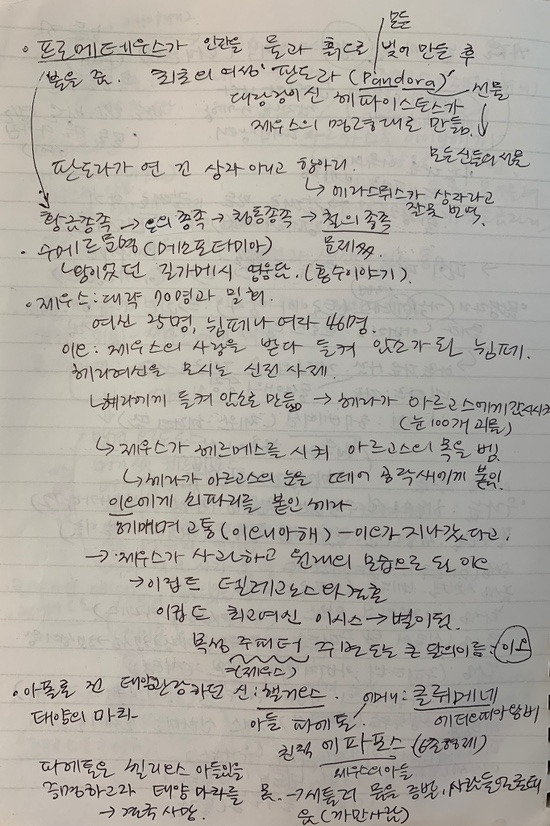 모든
• 프로메테우스가 인간을 물과 흙으로 빚어 만든 후
불을 줌. 최초의 여성 '판도라 (Pandora)' 선물
대장장이신 헤파이스토스가
제우스의 명령대로 만듦.
모든 신들의 선물
판도라가 연 건 상자 아니고 항아리.
↳ 에라스뮈스가 상자라고
잘못 번역.
황금종족 → 은의 종족 → 청동종족 → 철의 종족
문제多
• 수메르 문명 (메소포타미아)
왕이었던 길가메시 영웅담. (홍수이야기).
• 제우스: 대략 70명과 밀회.
여신 25명, 님페나 여자 46명.
이오: 제우스의 사랑을 받다 들켜 암소가 된 님페.
헤라여신을 모시는 신전 사제.
↳ 헤라에게 들켜 암소로 만듦 → 헤라가 아르고스에게 감시시켜
(눈 100개 괴물)
↳ 제우스가 헤르메스를 시켜 아르고스의 목을 벰.
↳ 헤라가 아르고스의 눈을 떼어 공작새에게 붙임.
이오에게 쇠파리를 붙인 헤라
헤매며 고통 (이오니아해) - 이오가 지나갔다고.
→ 제우스가 사과하고 원래의 모습으로 된 이오
→ 이집트 텔레고노스와 결혼
이집트 최고여신 이시스 → 별이 됨.
목성 주피터 주변 도는 큰 달의 이름: 이오
=(제우스)
• 아폴로 전 태양관장하던 신: 헬리오스. 어머니: 클뤼메네
태양의 마차 아들 파에톤 에티오피아 왕비
친척 에파포스 (6촌형제)
제우스의 아들
파에톤은 헬리오스 아들임을
증명하고자 태양마차를 몲. →
→ 결국 사망. (까만사람)